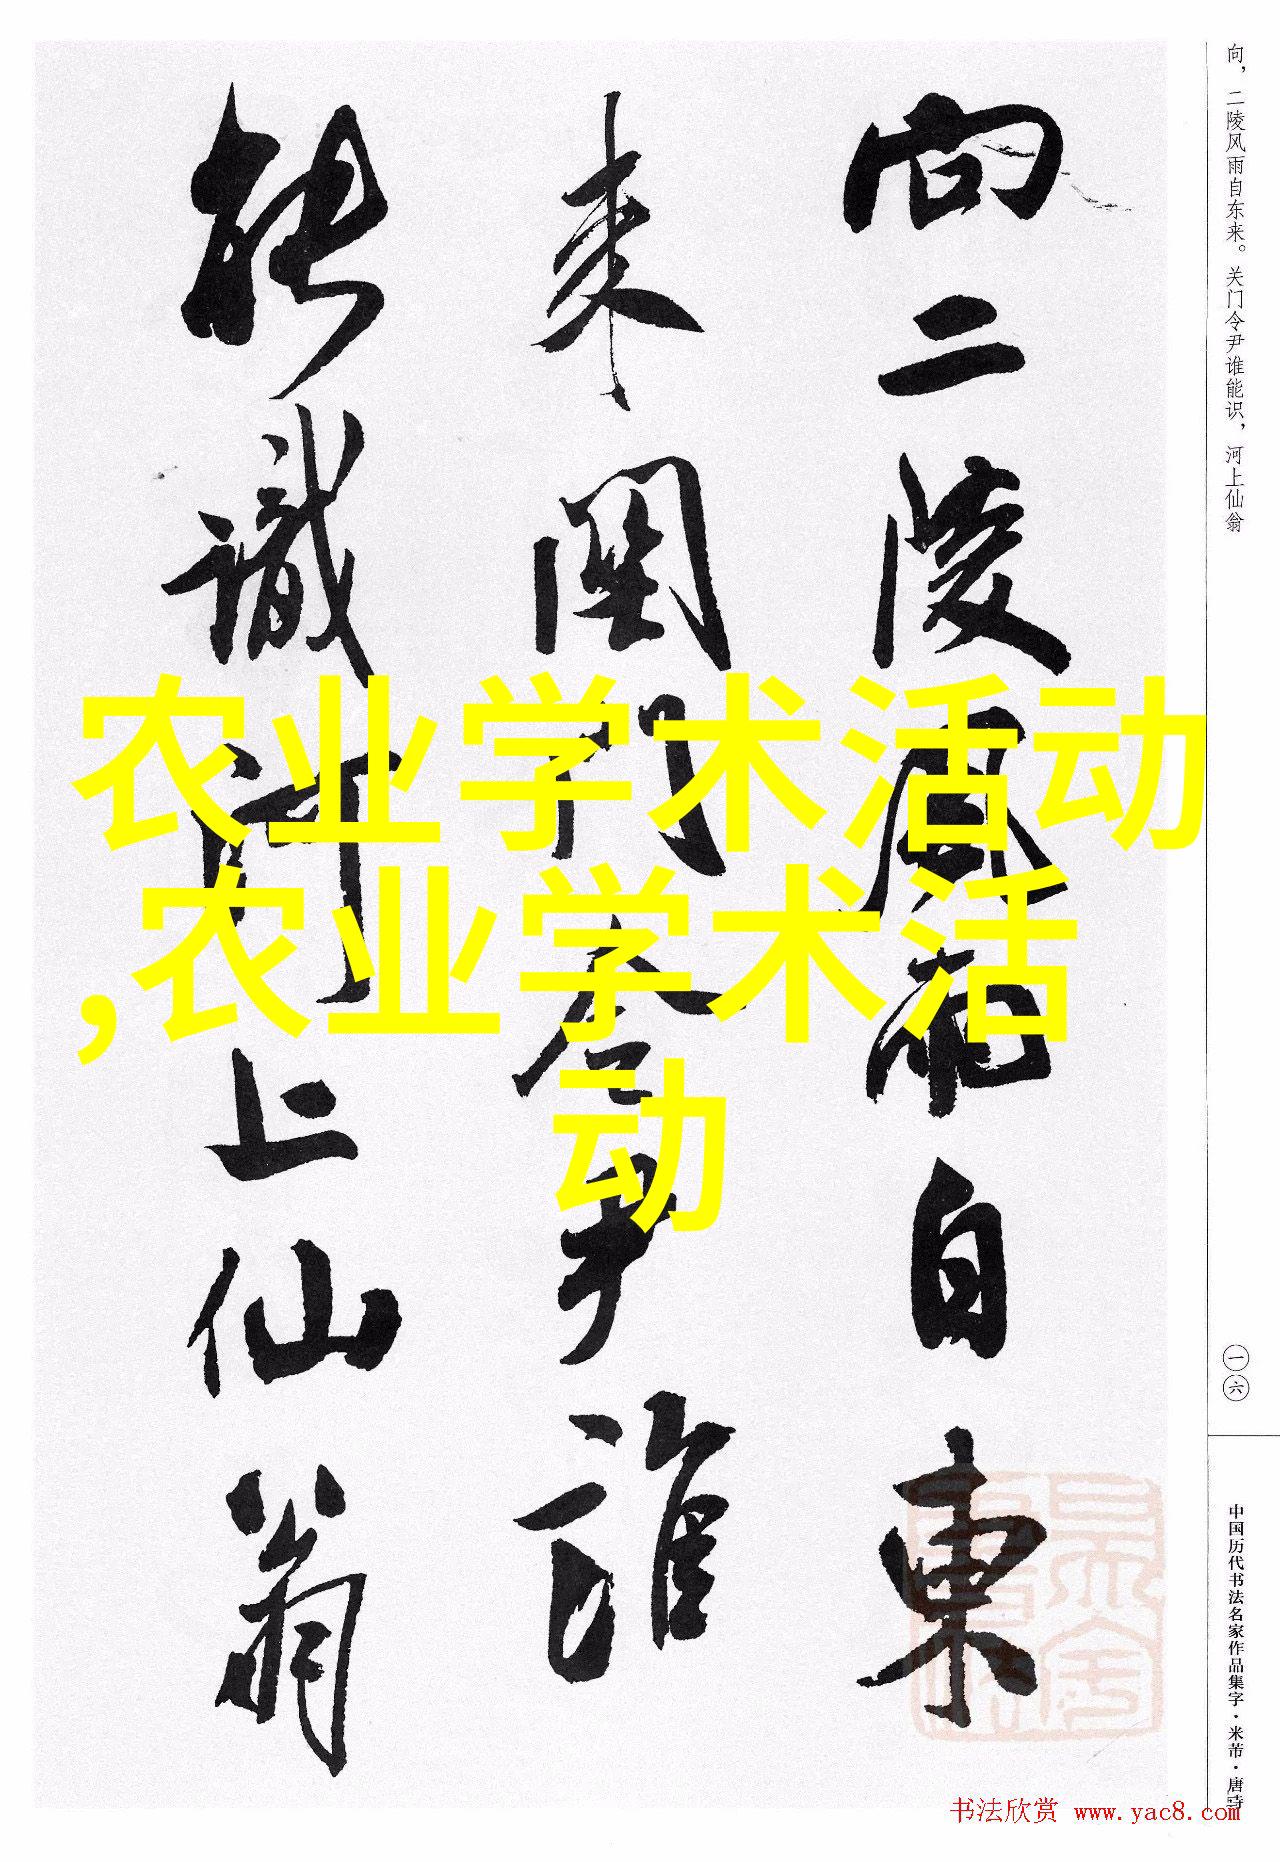 向，二陵风雨自东来。关门令尹谁能识，河上仙翁
向二陵風雨自東
来関門令尹誰
能識河上仙翁
农业学术活动
,农业学术活
动
一六
中国历代书法名家作品集字·米芾·唐诗
书法欣赏 www.yac8.com